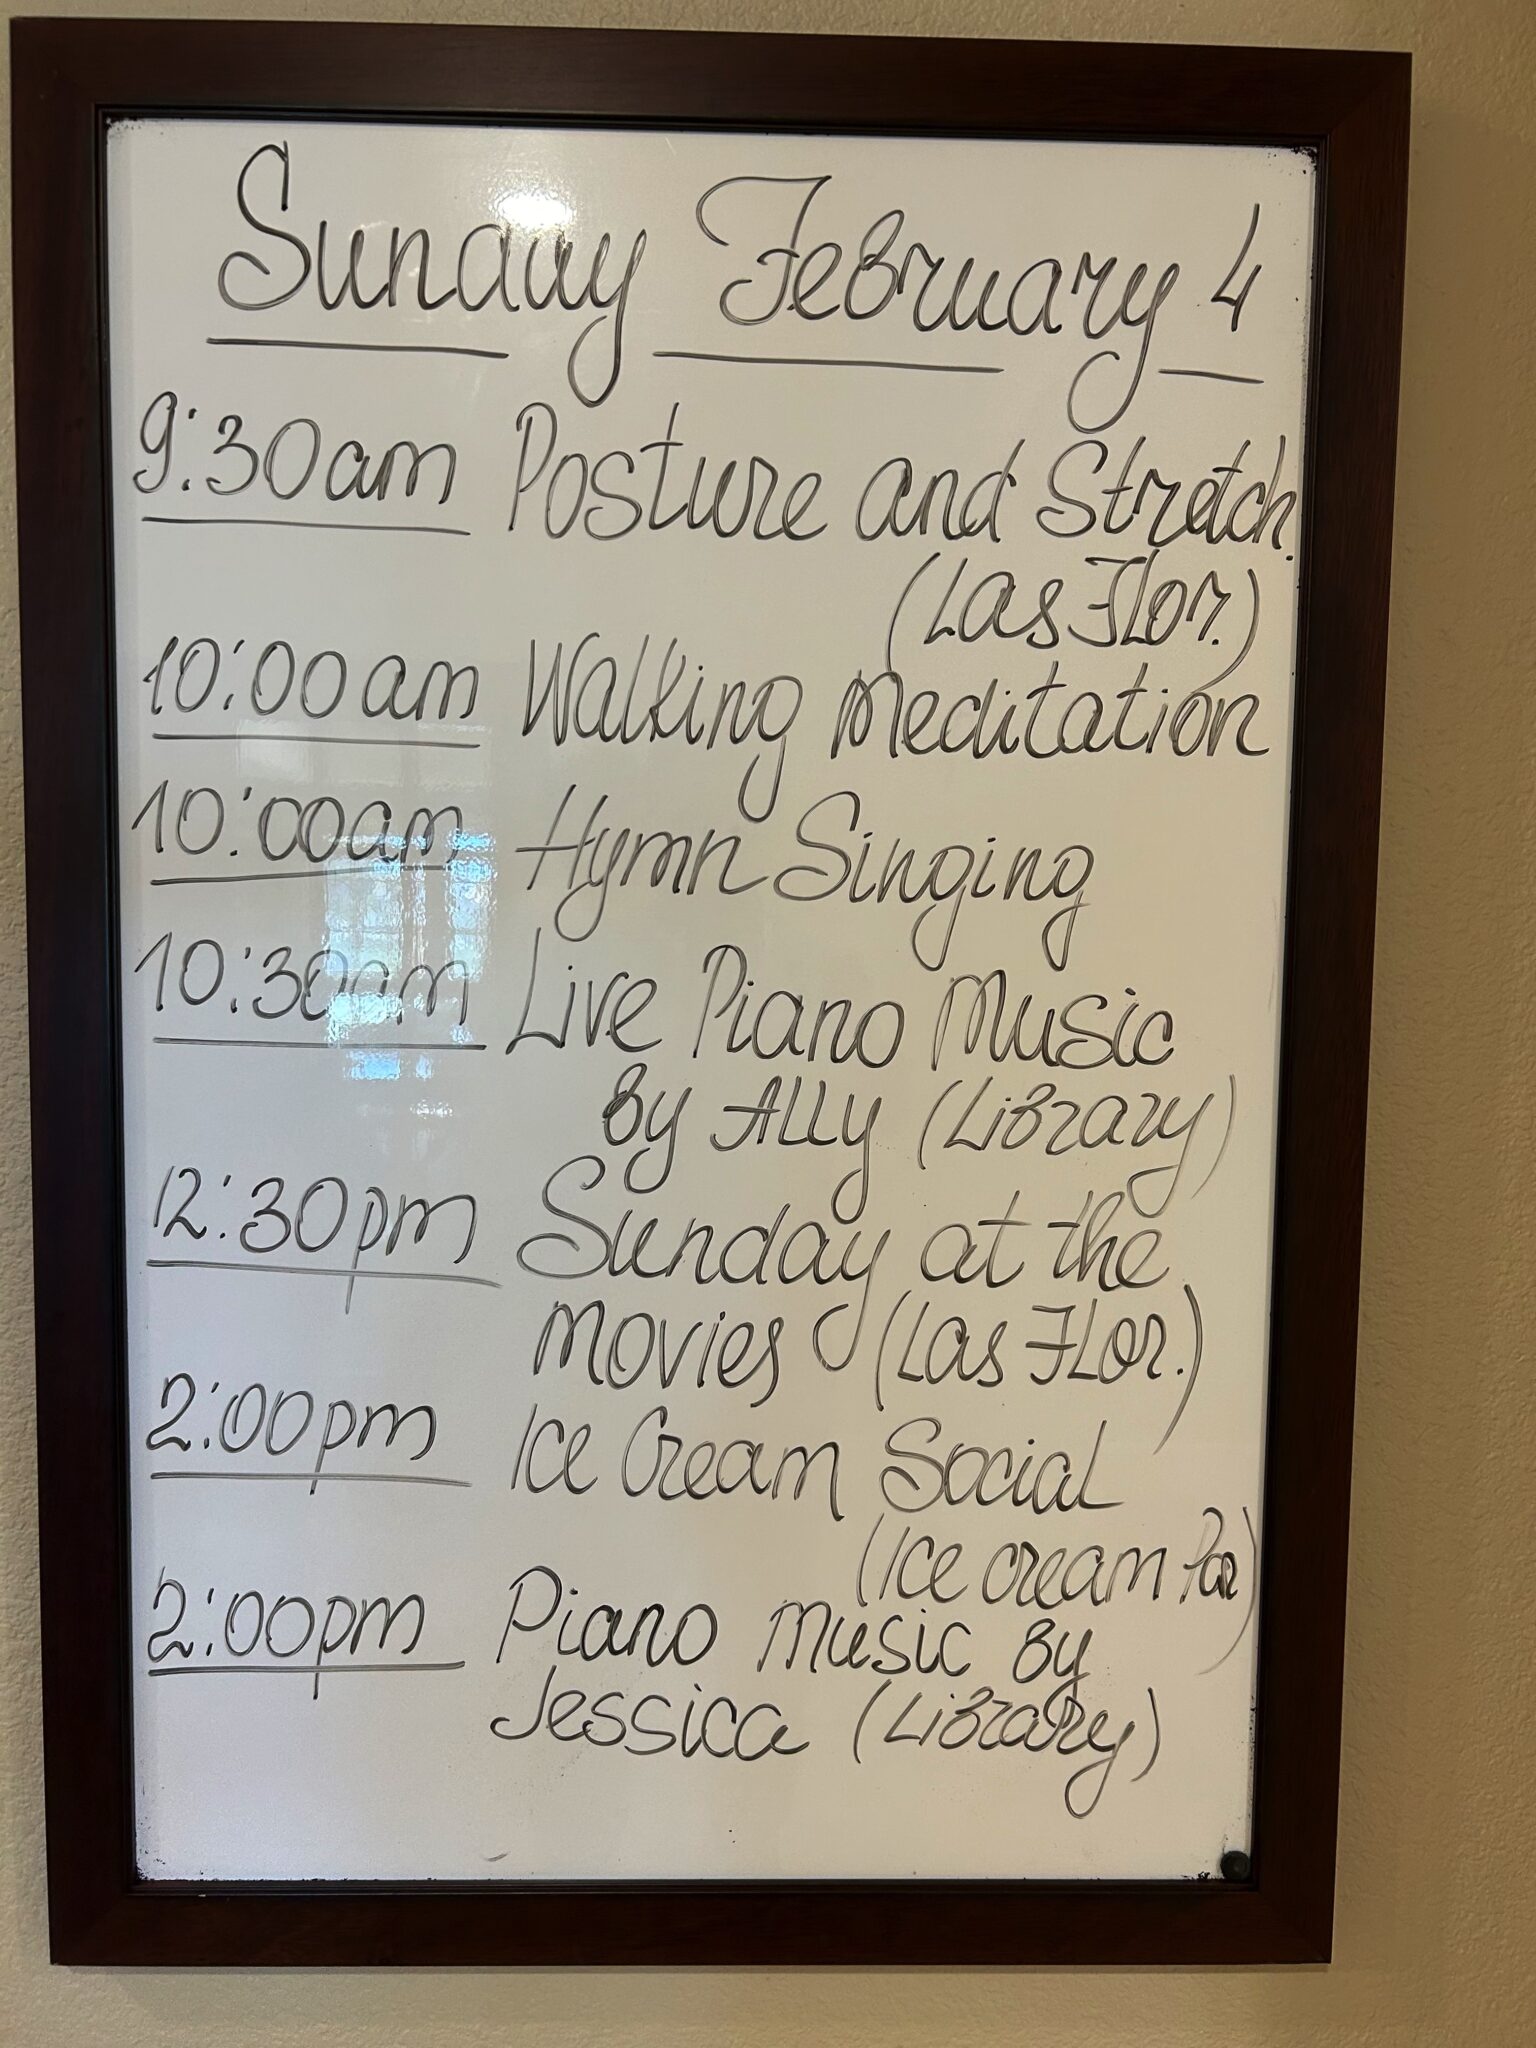 Sunday February 4
9:30am Posture and Stretch.
(Las Flor.)
10:00am Walking Meditation
10:00am Hymn Singing
10:30am Live Piano Music
By Ally (Library)
12:30pm Sunday at the
Movies (Las Flor.)
2:00pm Ice Cream Social
(Ice cream Par)
2:00pm Piano Music By
Jessica (Library)